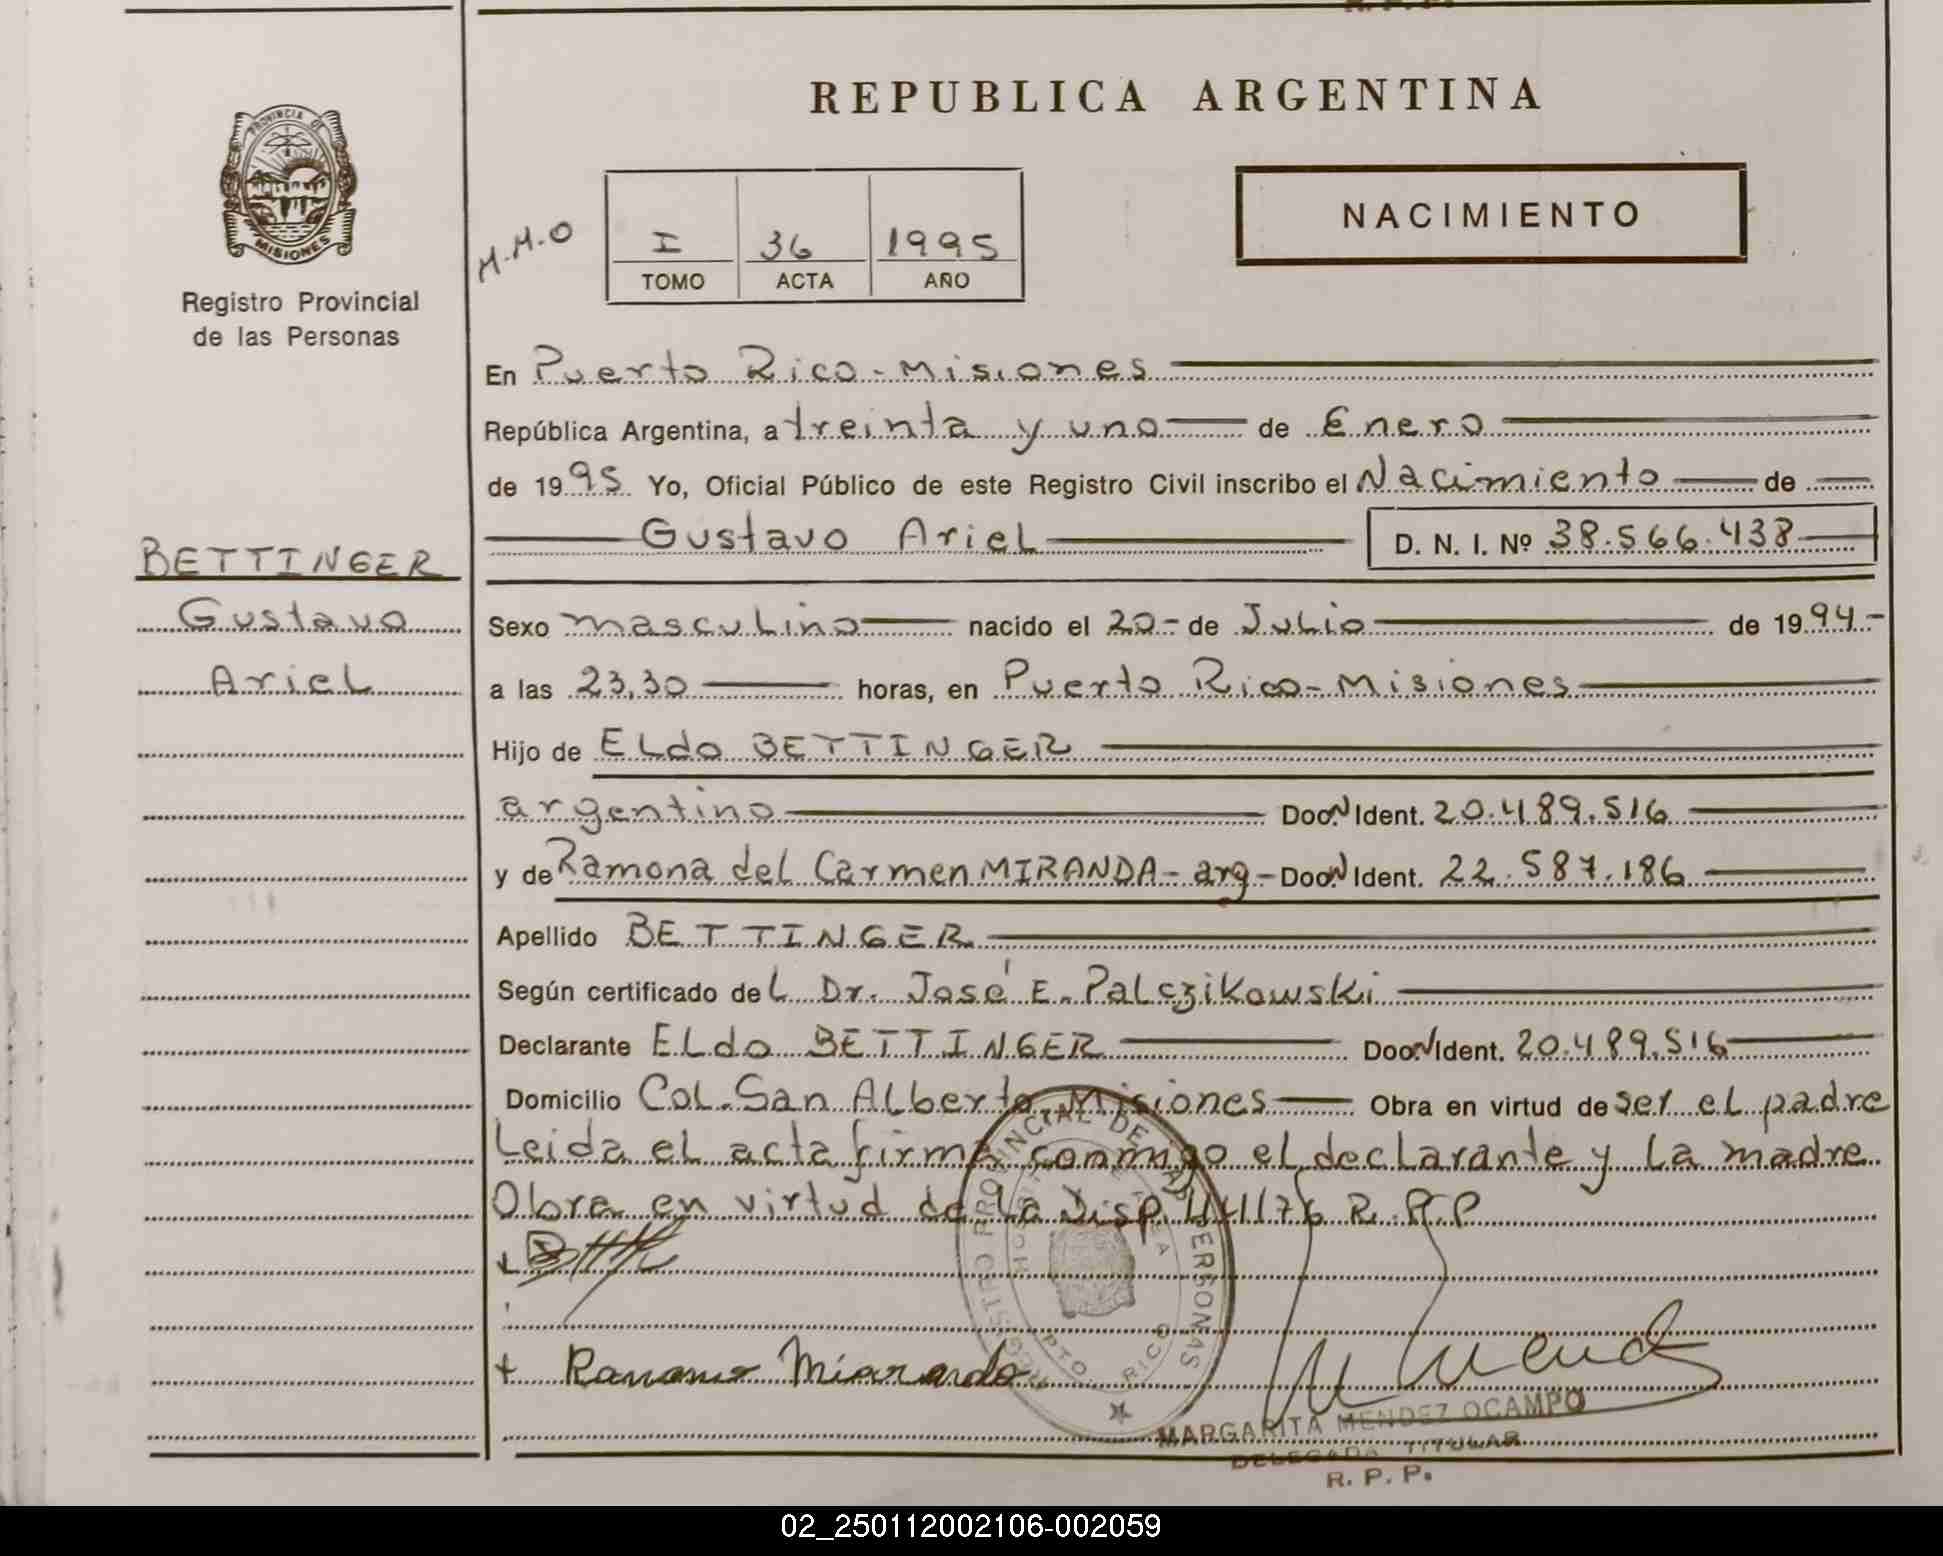 REPUBLICA ARGENTINA
PROVINCIA DE
MISIONES
Registro Provincial
de las Personas
M.M.O
I 36 1995
TOMO ACTA AÑO
NACIMIENTO
En Puerto Rico - Misiones
República Argentina, a treinta y uno de Enero
de 1995 Yo, Oficial Público de este Registro Civil inscribo el Nacimiento de
Gustavo Ariel D. N. I. Nº 38.566.438
BETTINGER
Gustavo
Ariel
Sexo masculino nacido el 20- de Julio de 1994.-
a las 23,30 horas, en Puerto Rico - Misiones
Hijo de Eldo BETTINGER
argentino Doc. N Ident. 20.489.516
y de Ramona del Carmen MIRANDA - arg - Doc. N Ident. 22.587.186
Apellido BETTINGER
Según certificado del Dr. José E. Palczikowski
Declarante Eldo BETTINGER Doc. N Ident. 20.489.516
Domicilio Col. San Alberto, Misiones Obra en virtud de ser el padre
Leida el acta firma conmigo el declarante y la madre.
Obra en virtud de la Disp. 141/76 R.P.P
REGISTRO PROVINCIAL DE LAS PERSONAS
PTO. RICO
+ Ramona Miranda
MARGARITA MENDEZ OCAMPO
DELEGADA TITULAR
R. P. P.
02_250112002106-002059